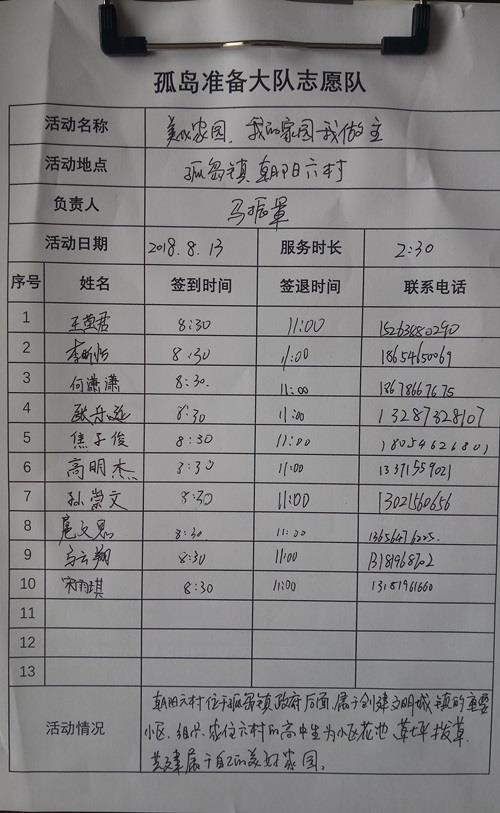 孤岛准备大队志愿队
活动名称 美化家园，我的家园我做主
活动地点 孤岛镇朝阳六村
负责人 马振军
活动日期 2018.8.13 服务时长 2:30
序号 姓名 签到时间 签退时间 联系电话
1 王莹君 8:30 11:00 15263680290
2 李昕怡 8:30 11:00 18654650069
3 何潇潇 8:30. 11:00 18678667675
4 8:30 11:00 13287328107
5 焦子俊 8:30 11:00 18054626801
6 高明杰 8:30 11:00 13371559021
7 孙崇文 8:30 11:00 13021560656
8 8:30 11:00 13656476225.
9 马云翔 8:30 11:00 13181968702
10 宋雨琪 8:30 11:00 13181961660
11
12
13
活动情况 朝阳六村位于孤岛镇政府后面，属于创建文明城镇的重要
小区，组织家住六村的高中生为小区花池、草坪拔草，
共建属于自己的美好家园。